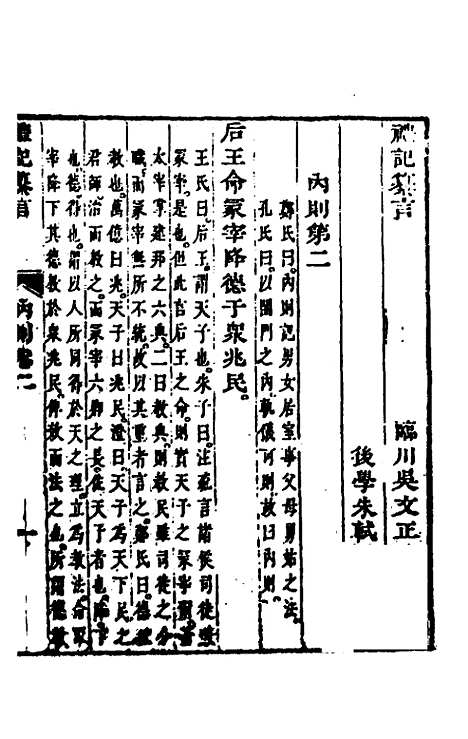 禮記纂言
臨川吳文正
後學朱軾
內則第二
鄭氏曰內則記男女居室事父母舅姑之法
孔氏曰以閨門之內軌儀可則故曰內則
后王命冢宰降德于衆兆民
王氏曰后王謂天子也朱子曰注疏言諸侯司徒兼
冢宰是也但此言后王之命則實天子之冢宰爾
太宰掌建邦之六典二曰教典則教民雖司徒之分
職而冢宰無所不統故以其重者言之鄭氏曰德猶
教也萬億曰兆天子曰兆民澄曰天子爲天下民之
君師治而教之而冢宰六卿之長佐天子者也降下
也德得也謂以人所同得於天之理立爲教法命冢
宰降下其德教於衆兆民俾放而法之也所謂德教
禮記纂言
內則卷二